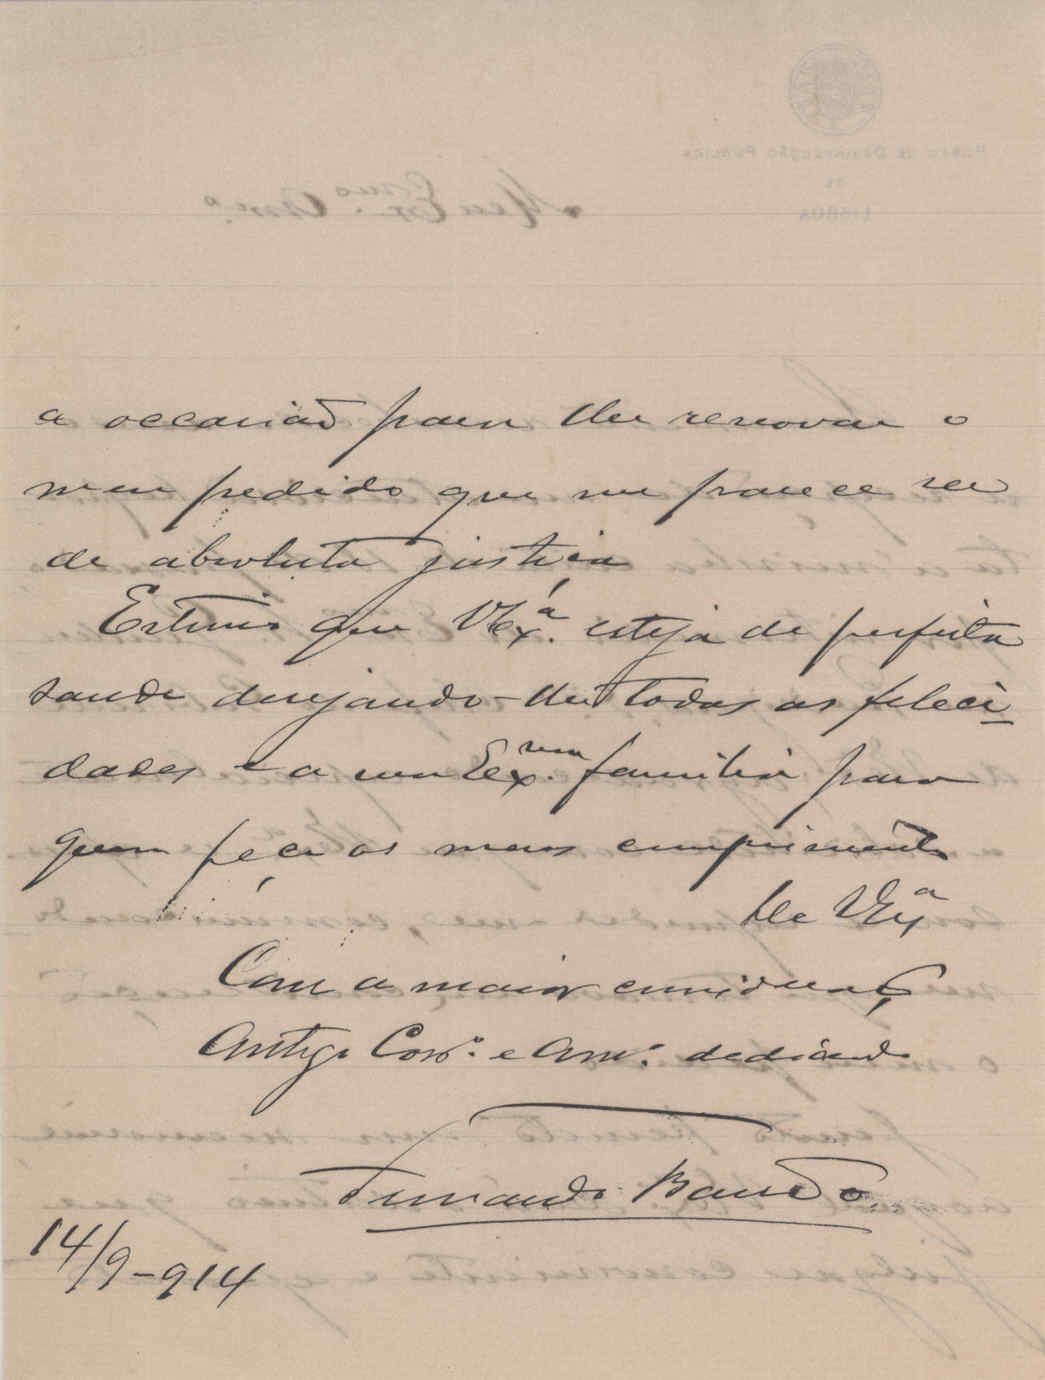 a occasião para lhe renovar o
meu pedido que me parece ser
de absoluta justiça
Estimo que V Ex.ª esteja de perfeita
saude desejando-lhe todas as feleci-
dades e a sua Ex.ma familia para
quem peço os meus cumprimentos
De V Exª
Com a maior consideração
Antigo Cor.º e Am.º dedicado
Fernando
14/9-914